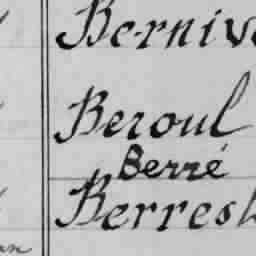 Berniv
Beroul
Berré
Berres
an